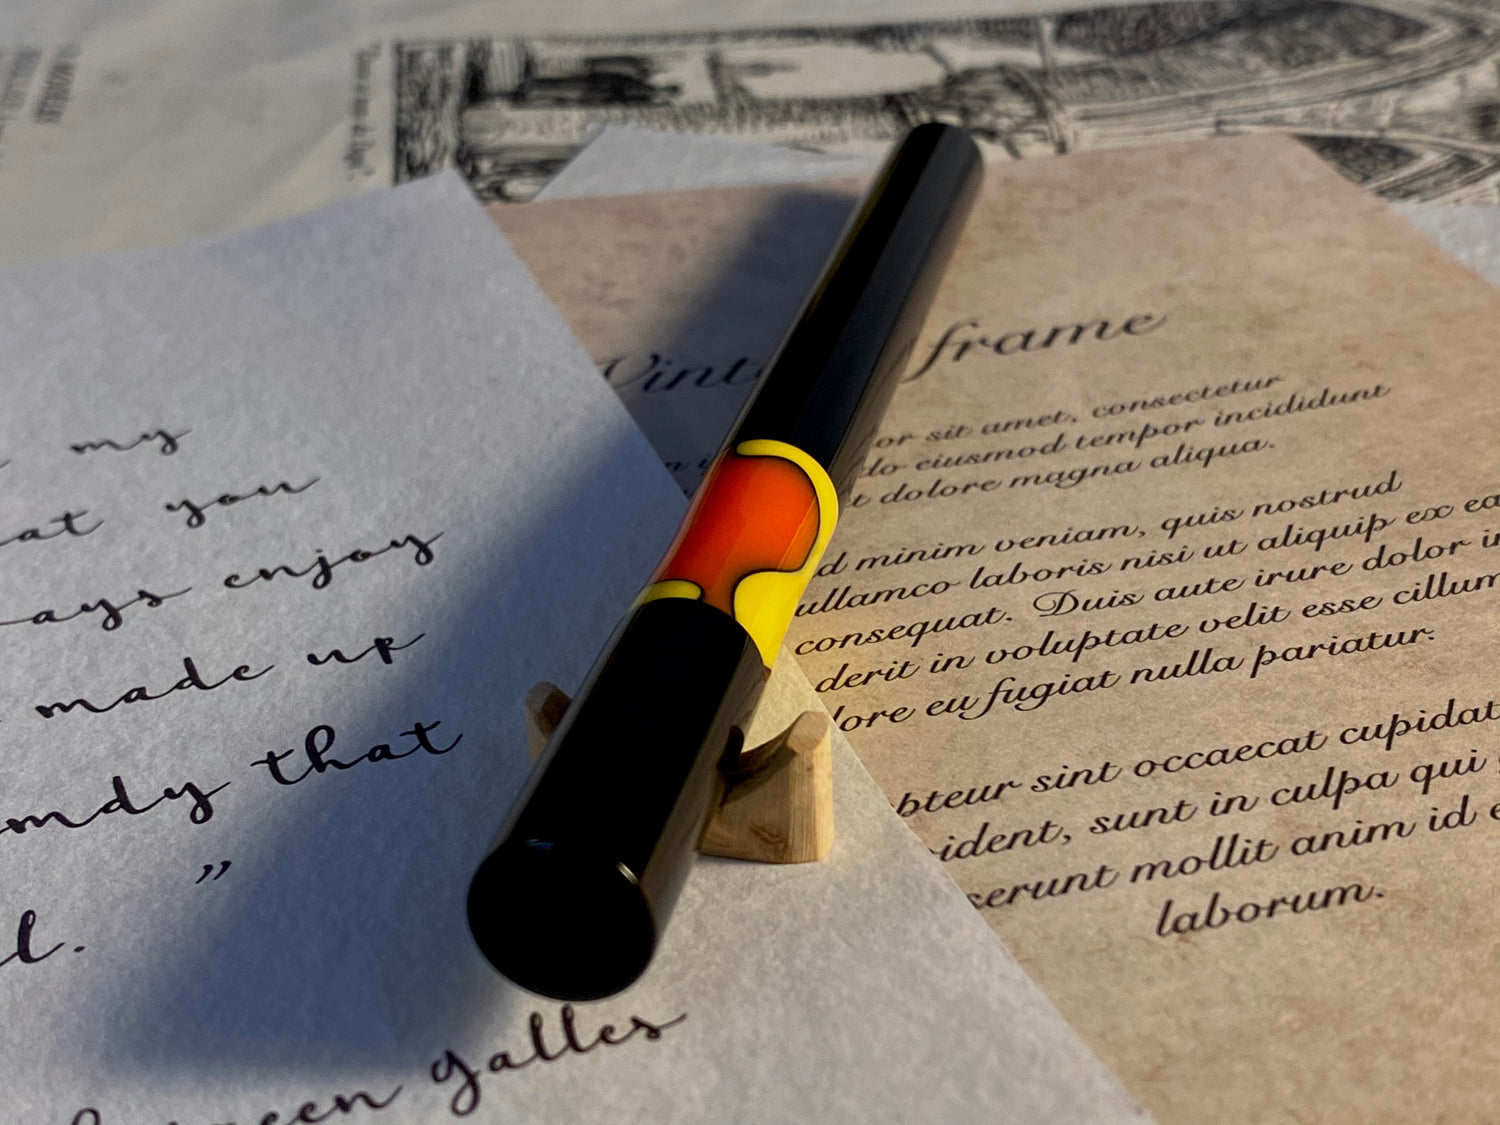 my
at you
ays enjoy
made up
mdy that
"
l.
een Galles
Vint frame
or sit amet, consectetur
do eiusmod tempor incididunt
t dolore magna aliqua.
d minim veniam, quis nostrud
ullamco laboris nisi ut aliquip ex ea
consequat. Duis aute irure dolor in
derit in voluptate velit esse cillum
lore eu fugiat nulla pariatur.
pteur sint occaecat cupidat
ident, sunt in culpa qui
serunt mollit anim id e
laborum.